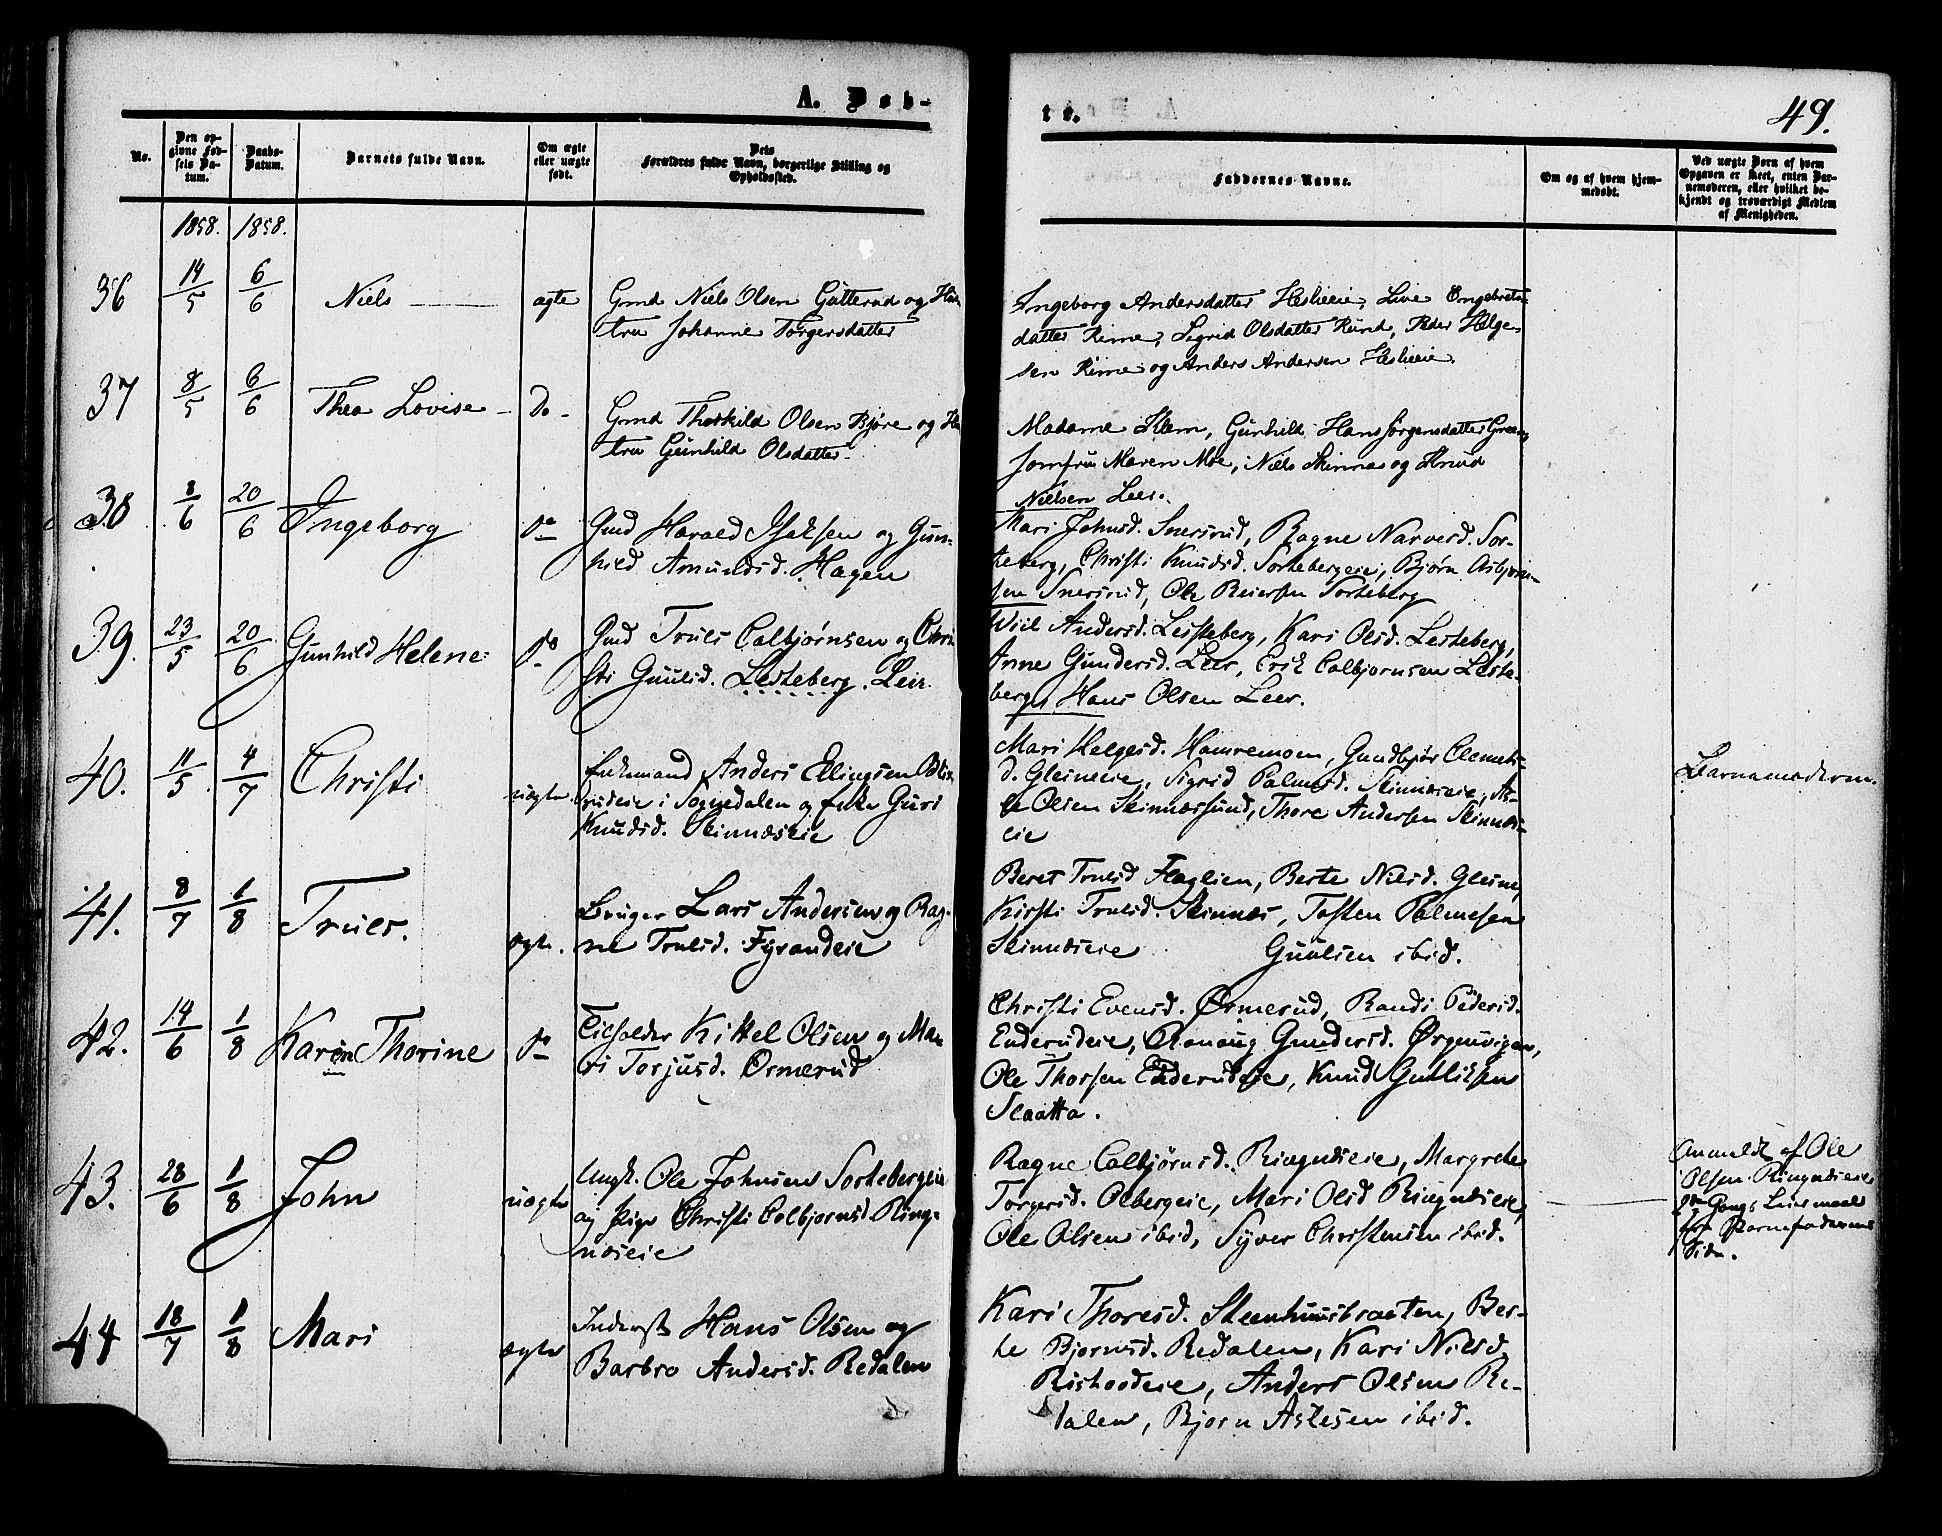 A. Døb-
te.
49.
No.
Den op-
givne Fød-
sels Da-
tum.
Daabs-
Datum.
Barnets fulde Navn.
Om ægte
eller uægte
født.
Dets
Forældres fulde Navn, borgerlige Stilling og
Opholdssted.
Faddernes Navne.
Om og af hvem hjem-
medøbt.
Ved uægte Børn af hvem
Opgaven er skeet, enten Bar-
nemoderen, eller hvilket be-
kjendt og troværdigt Medlem
af Menigheden.
1858. 1858.
36 14/5 6/6 Niels ægte
Gmd Niels Olsen Gutterud og Hus-
tru Johanne Torgersdatter
Ingeborg Andersdatter Heslieeie, Live Engebrets-
datter Rime, Sigrid Olsdatter Rund, Peder Helge-
sen Rime og Anders Andersen Heslieeie
37 8/5 6/6 Thea Lovise Do
Gmd Thorkild Olsen Bjøre og Hu-
tru Gunhild Olsdatter
Madame Klem, Gunhild Hans Jørgensdatter
Jomfru Maren Moe, Niels Skinnæs og Knud
Nielsen Leer.
38 8/6 20/6 Ingeborg Do
Gmd Harald Isaksen og Gun-
hild Amundsd. Hagen
Mari Johnsd. Snersrud, Ragne Narvesd. Sor-
teberg, Christi Knudsd. Sortebergeie, Bjørn Asbjørn-
sen Snersrud, Ole Reiersen Sorteberg
39. 23/5 20/6 Gunhild Helene Do
Gmd Truls Colbjørnsen og Chri-
sti Guulsd. Lesteberg. Leir.
Andersd. Lesteberg, Kari Olsd. Lesteberg,
Anne Gundersd. Leer, Erik Colbjørnsen Leste-
berg, Hans Olsen Leer.
40. 11/5 4/7 Christi uægte.
Enkemand Anders Ellingsen
i Sognedalen og Enke Guri
Knudsd. Skinnæseie
Mari Helgesd. Hamremoen, Gundbjør Clemets-
d. Gleineeie, Sigrid Palmesd. Skinnæseie, As-
le Olsen Skinnæssund, Thore Andersen Skinnæs-
eie
Barnemoderen.
41. 8/7 1/8 Truls. ægte.
Bruger Lars Andersen og Rag-
ne Trulsd. Fyrandeie
Beret Trulsd Flaglien, Berte Nilsd. Gleine,
Kirsti Trulsd. Skinnæs, Tosten Palmesen
Skinnæseie Guulsen ibid.
42. 14/6 1/8 Karen Thorine Do
Leilolder Kittel Olsen og Ma-
ri Torjusd. Ormerud
Christi Evensd. Ormerud, Randi Pedersd.
Enderudeie, Ronaug Gundersd. Ørgenvigen,
Ole Thorsen Enderudeie, Knud Gulliksen
Slaatta.
43. 28/6 1/8 John uægte
Ungk. Ole Johnsen Sortebergeie
og Pige Christi Colbjørnsd. Ring-
næseie
Ragne Colbjørnsd. Ringnæseie, Margrethe
Torgersd. Olbergeie, Mari Olsd Ringnæseie,
Ole Olsen ibid, Syver Christensen ibid.
Anmeldt af Ole
Olsen Ringnæseie
2den Gangs Leiermaal
fra Barnefaderens
Side.
44 18/7 1/8 Mari ægte
Inderst Hans Olsen og
Barbro Andersd. Redalen
Kari Thoresd. Steenhuusbraaten, Ber-
te Bjørnsd. Redalen, Kari Nilsd.
Rishovdeie, Anders Olsen Re-
dalen, Bjørn Aslesen ibid.